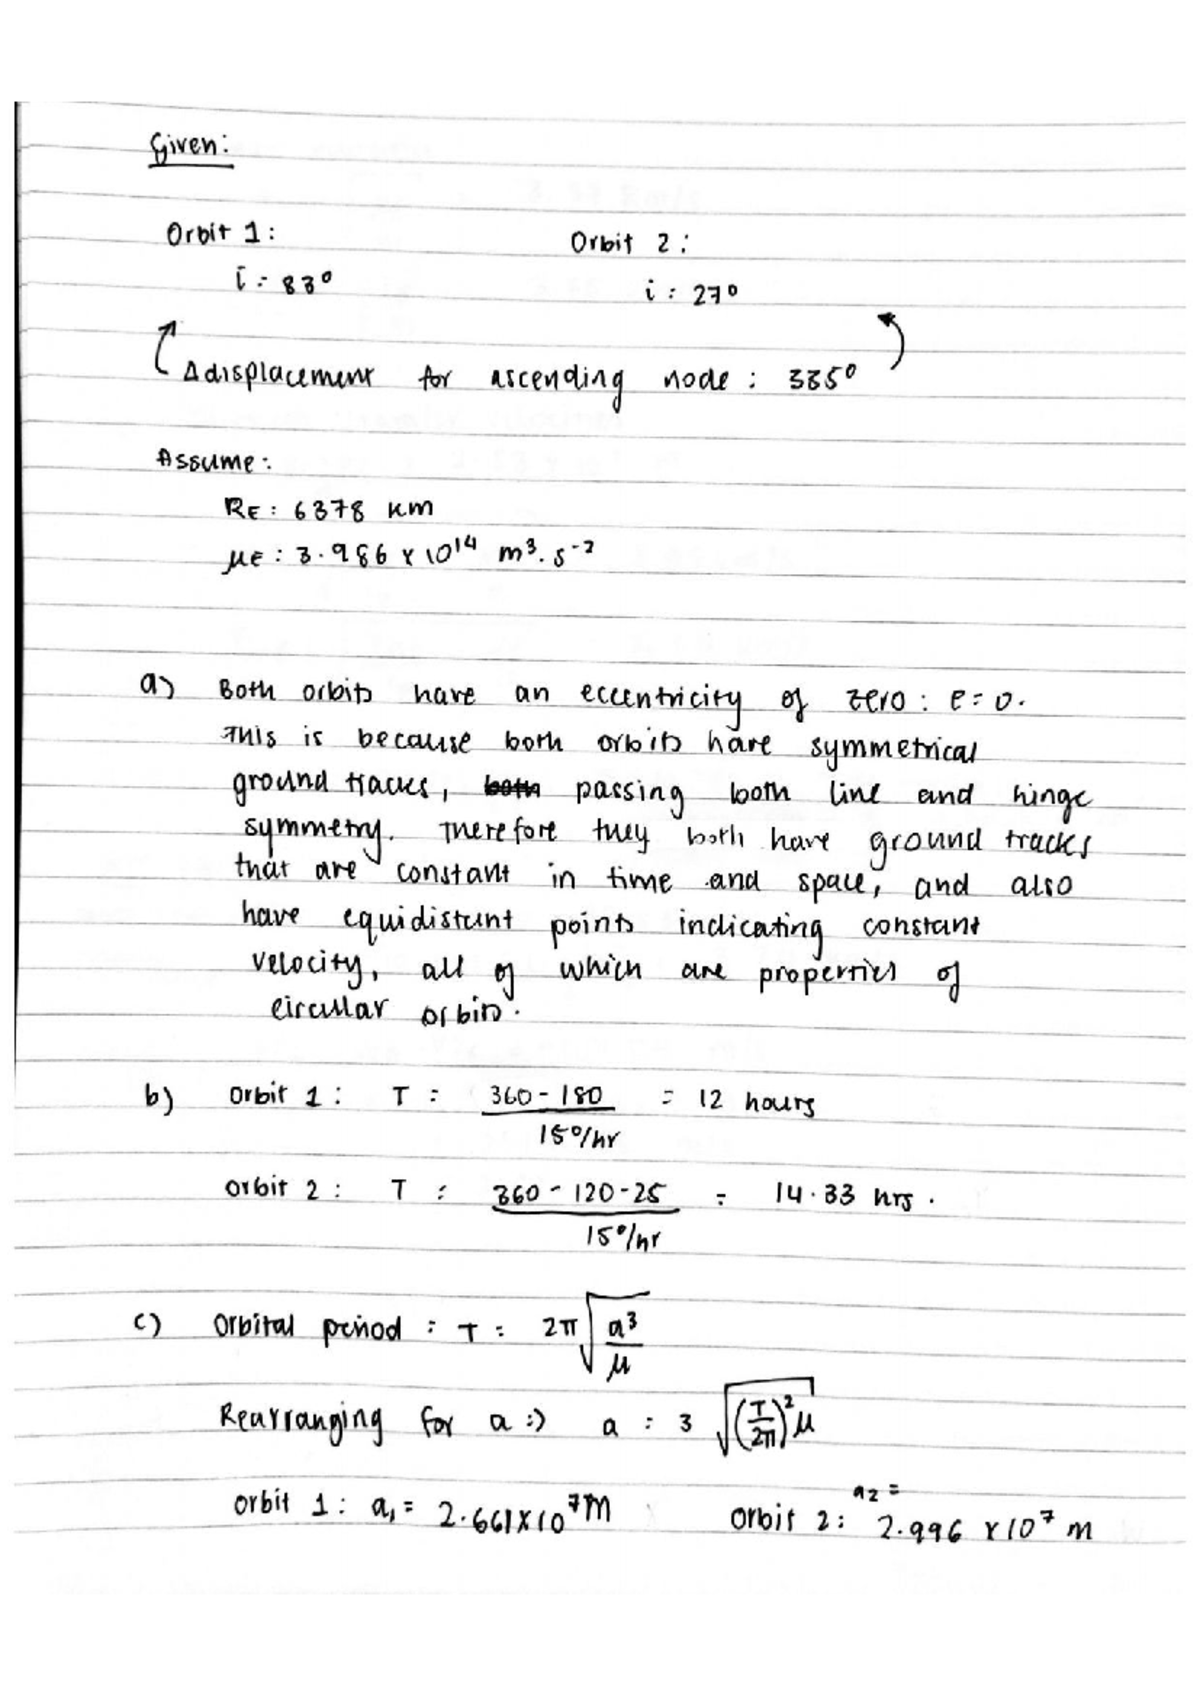 Given:
Orbit 1: Orbit 2:
i = 83° i: 27°
Δdisplacement for ascending node: 335°
Assume:
RE: 6378 km
μE: 3.986 x 10¹⁴ m³.s⁻²
a) Both orbits have an eccentricity of zero: e=0.
This is because both orbits have symmetrical
ground tracks, both passing both line and hinge
symmetry. Therefore they both have ground tracks
that are constant in time and space, and also
have equidistant points indicating constant
velocity, all of which are properties of
circular orbits.
b) Orbit 1: T = 360-180 / 15°/hr = 12 hours
Orbit 2: T = 360-120-25 / 15°/hr = 14.33 hrs.
c) Orbital period: T = 2π √(a³/μ)
Rearranging for a :) a = 3 √((T/2π)² μ)
Orbit 1: a₁ = 2.661x10⁷m Orbit 2: a₂ = 2.996 x10⁷ m